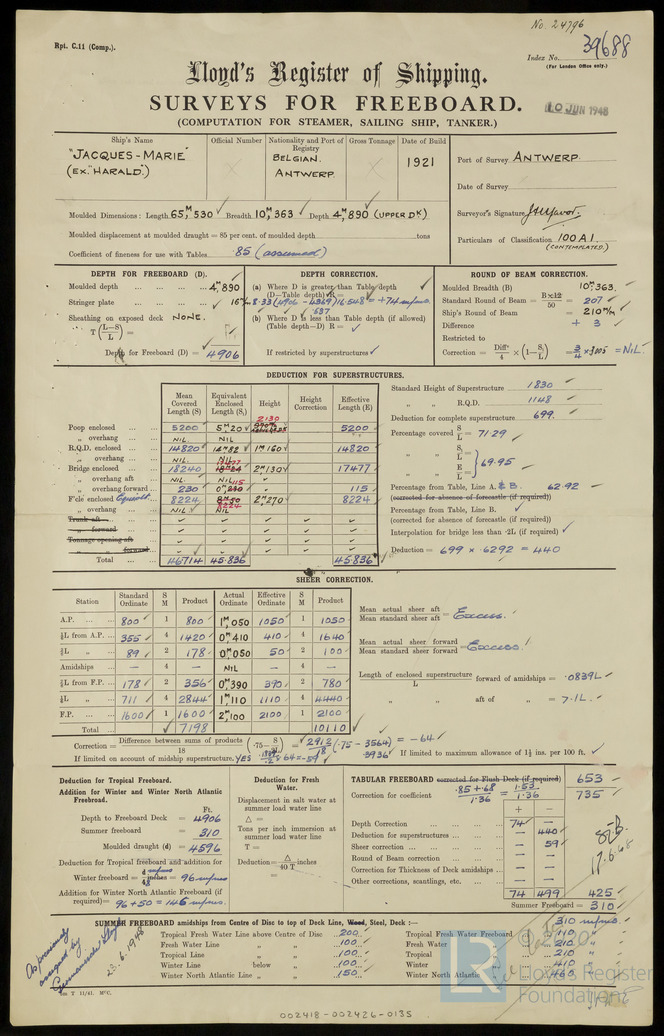 No. 24796
Rpt. C.11 (Comp.).
Index No. 39688
(For London Office only.)
Lloyd's Register of Shipping.
SURVEYS FOR FREEBOARD.
10 JUN 1948
(COMPUTATION FOR STEAMER, SAILING SHIP, TANKER.)
Ship's Name Official Number Nationality and Port of Registry Gross Tonnage Date of Build
"JACQUES-MARIE" (EX. "HARALD".) BELGIAN. ANTWERP. 1921
Port of Survey ANTWERP.
Date of Survey
Surveyor's Signature
Particulars of Classification 100 A1. (CONTEMPLATED.)
Moulded Dimensions: Length 65,M530 Breadth 10,M363 Depth 4,M890 (UPPER DK)
Moulded displacement at moulded draught = 85 per cent. of moulded depth tons
Coefficient of fineness for use with Tables .85 (assumed)
DEPTH FOR FREEBOARD (D).
Moulded depth 4,M890
Stringer plate 16
Sheathing on exposed deck NONE.
T (L-S/L) =
Depth for Freeboard (D) = 4906
DEPTH CORRECTION.
(a) Where D is greater than Table depth
(D-Table depth) R =
8.33 (4906 - 4369) 16.548 = +74 m/ms
537
(b) Where D is less than Table depth (if allowed)
(Table depth-D) R =
If restricted by superstructures
ROUND OF BEAM CORRECTION.
Moulded Breadth (B) 10M363.
Standard Round of Beam = B×12/50 = 207
Ship's Round of Beam = 210 m/m
Difference + 3
Restricted to
Correction = Diffce/4 × (1 - S1/L) = 3/4 × = NIL.
DEDUCTION FOR SUPERSTRUCTURES.
Mean Covered Length (S) Equivalent Enclosed Length (S1) Height Height Correction Effective Length (E)
Poop enclosed 5200 5M20 2130 5200
" overhang NIL NIL
R.Q.D. enclosed 14820 14M82 1M160 14820
" overhang NIL NIL
Bridge enclosed 18240 17477 2M130 17477
" overhang aft NIL NIL
" overhang forward 230 115 115
F'cle enclosed 8224 8224 2M270 8224
" overhang NIL NIL
Trunk aft
" forward
Tonnage opening aft
" forward
Total 46714 45.836 45.836
Standard Height of Superstructure 1830
" " R.Q.D. 1148
Deduction for complete superstructure 699.
Percentage covered S/L = 71.29
" " S1/L = } 69.95
" " E/L =
Percentage from Table, Line A. & B. 62.92
(corrected for absence of forecastle (if required))
Percentage from Table, Line B.
(corrected for absence of forecastle (if required))
Interpolation for bridge less than .2L (if required)
Deduction = 699 × .6292 = 440
SHEER CORRECTION.
Station Standard Ordinate S M Product Actual Ordinate Effective Ordinate S M Product
A.P. 800 1 800 1M,050 1050 1 1050
1/6L from A.P. 355 4 1420 0M410 410 4 1640
1/3L " 89 2 178 0M050 50 2 100
Amidships — 4 — NIL — 4 —
1/3L from F.P. 178 2 356 0M390 390 2 780
1/6L " 711 4 2844 1M,110 1110 4 4440
F.P. 1600 1 1600 2M,100 2100 1 2100
Total 7198 10110
Mean actual sheer aft
Mean standard sheer aft = Excess.
Mean actual sheer forward
Mean standard sheer forward = Excess.
Length of enclosed superstructure/L forward of amidships = .0839L
" " aft of " = 7.1L.
Correction = Difference between sums of products/18 (.75 - S/2L) = 2912/18 (.75 - .3564) = -64
.3936
If limited on account of midship superstructure. YES × 64 = -59
If limited to maximum allowance of 1½ ins. per 100 ft.
Deduction for Tropical Freeboard.
Addition for Winter and Winter North Atlantic Freeboard.
Ft.
Depth to Freeboard Deck = 4906
Summer freeboard = 310
Moulded draught (d) = 4596
Deduction for Tropical freeboard and addition for
Winter freeboard = d/48 inches = 96 m/ms
Addition for Winter North Atlantic Freeboard (if
required) = 96 + 50 = 146 m/ms
Deduction for Fresh Water.
Displacement in salt water at summer load water line
△ =
Tons per inch immersion at summer load water line
T =
Deduction = △/40 T inches
=
TABULAR FREEBOARD corrected for Flush Deck (if required) 653
Correction for coefficient .85 + .68/1.36 = 1.53/1.36 735
+ —
Depth Correction 74 —
Deduction for superstructures — 440
Sheer correction — 59
Round of Beam correction — —
Correction for Thickness of Deck amidships — —
Other corrections, scantlings, etc. — —
74 499 425
Summer Freeboard = 310
17.6.48
SUMMER FREEBOARD amidships from Centre of Disc to top of Deck Line, Wood, Steel, Deck :— 310 m/ms.
Tropical Fresh Water Line above Centre of Disc 200
Fresh Water Line " " 100
Tropical Line " " 100
Winter Line below " 100
Winter North Atlantic Line " " 150
Tropical Fresh Water Freeboard 110 "
Fresh Water " 210 "
Tropical " 210 "
Winter " 410 "
Winter North Atlantic " 460 "
As previously assigned by
23.6.1948
Lloyd's Register Foundation
002418-002426-0135